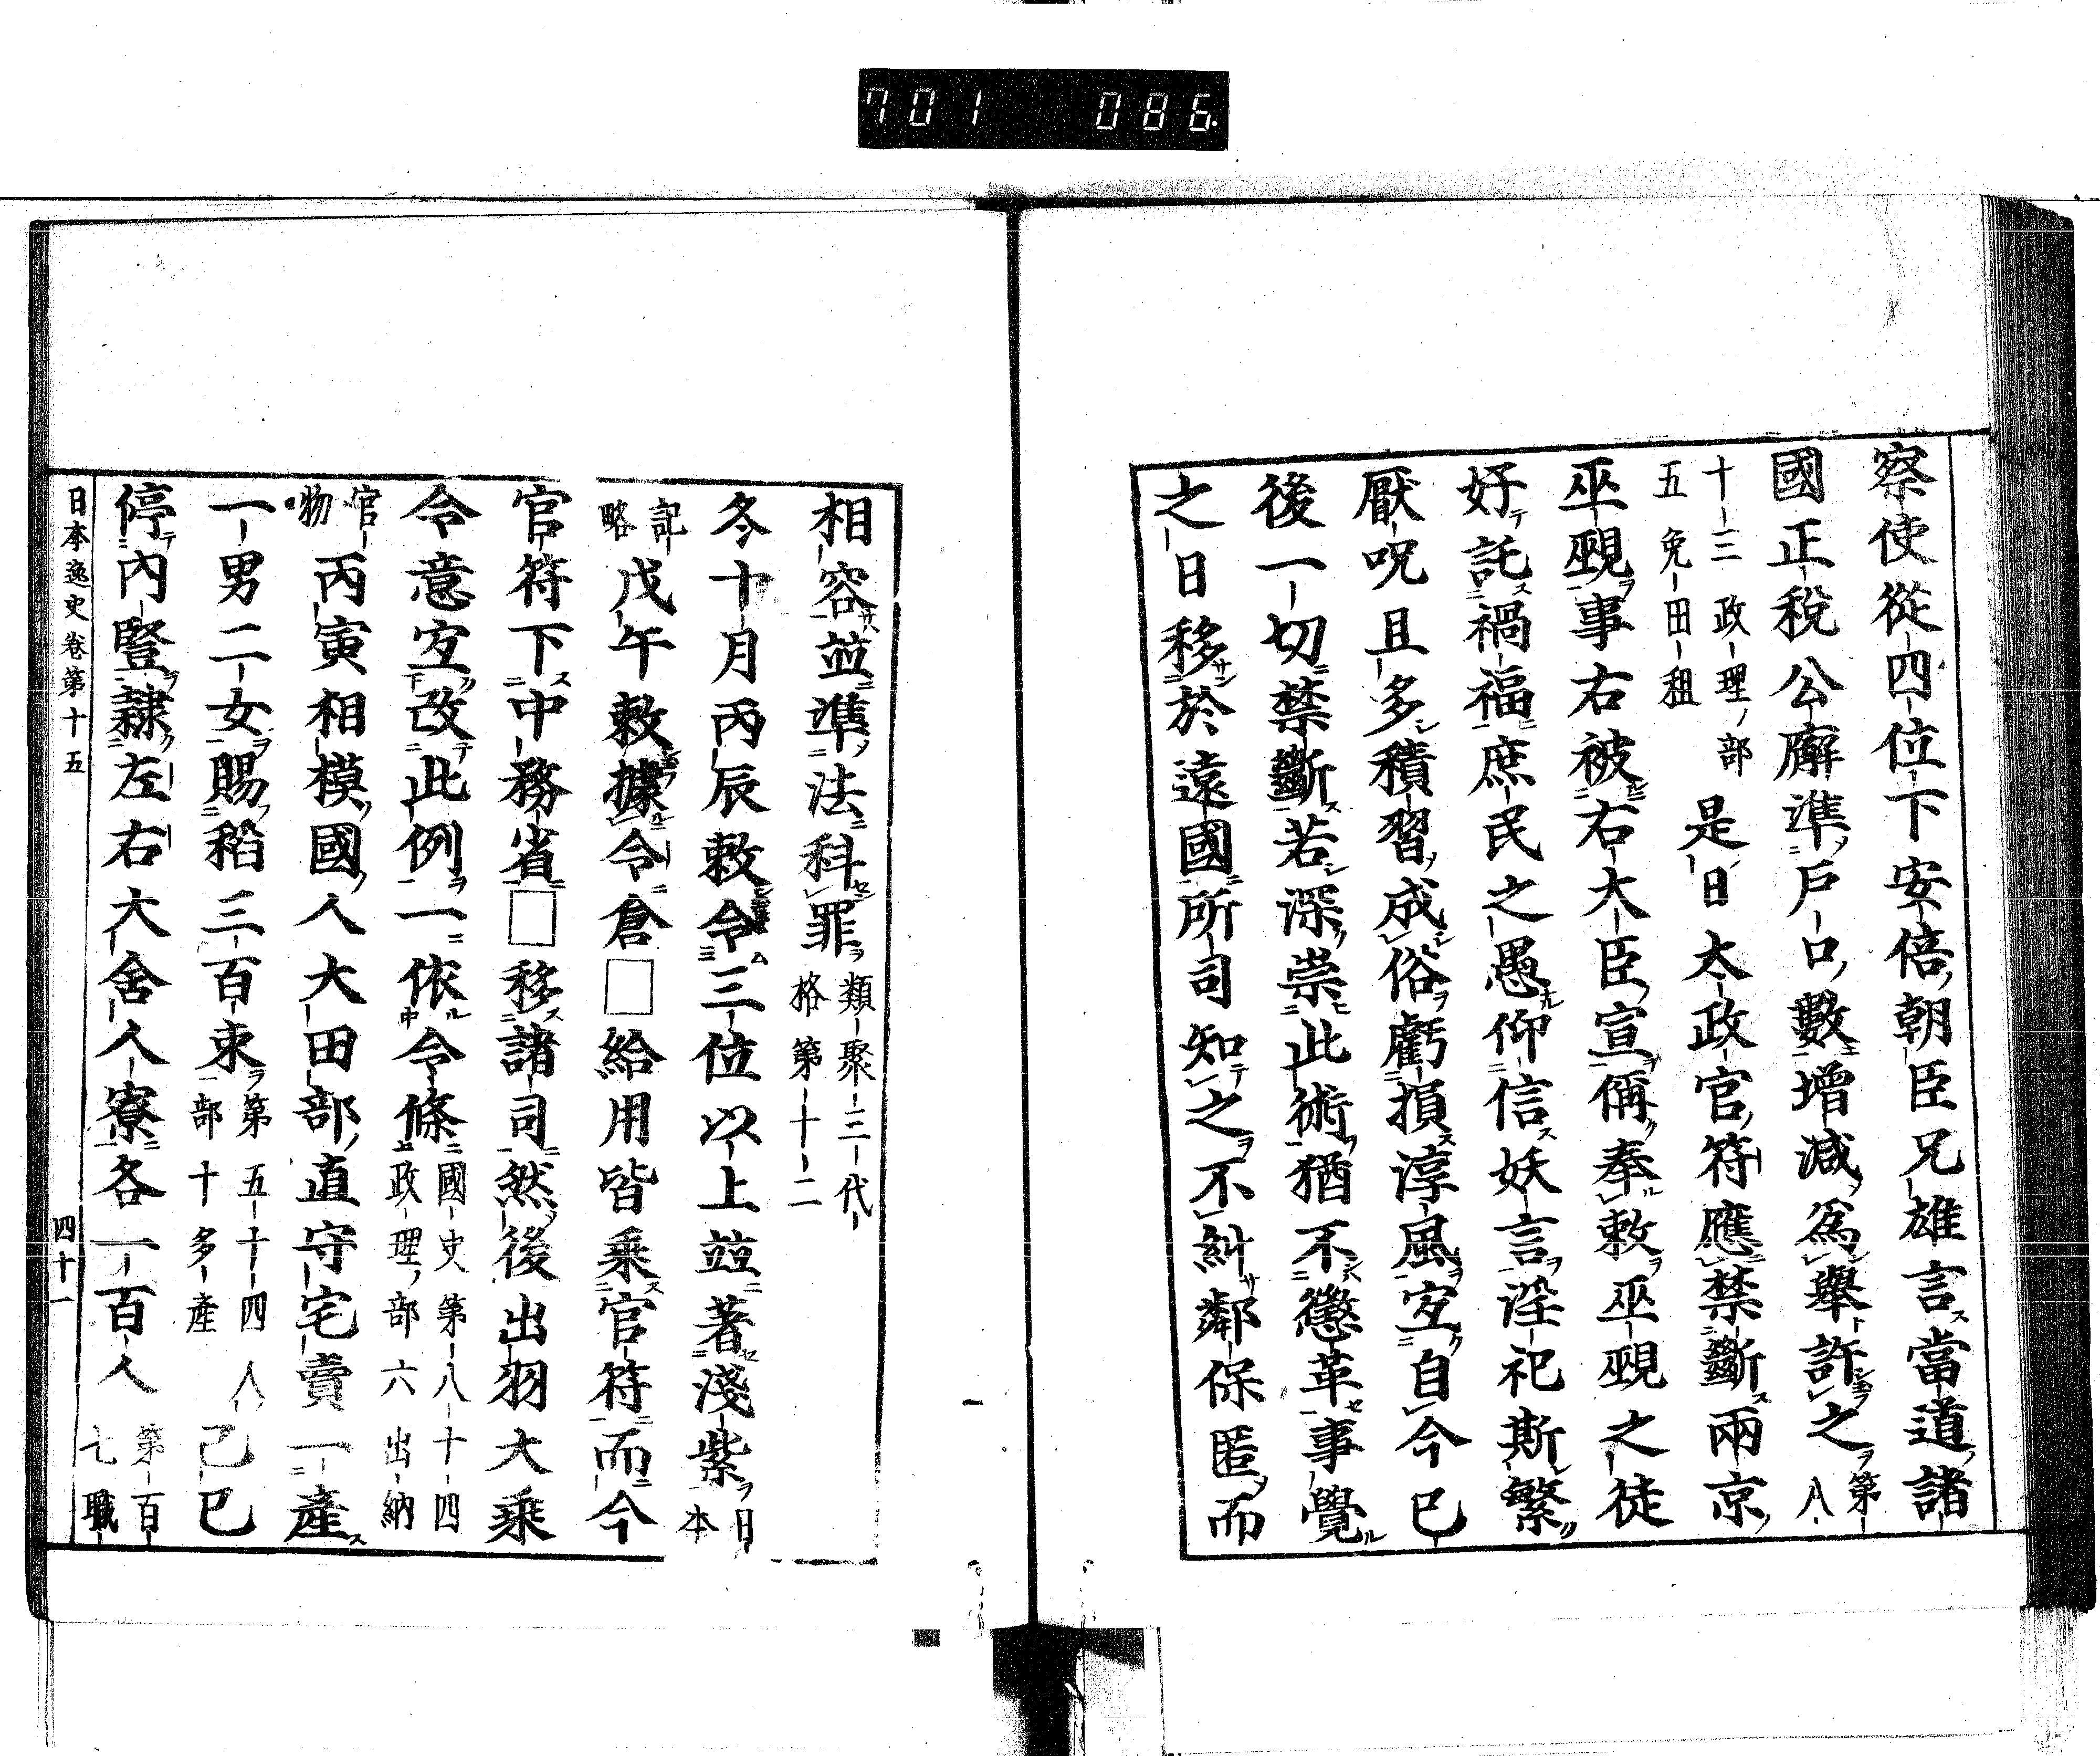 701 086
察使從四位下安倍朝臣兄雄言當道諸
國正稅公廨準戶口數增減爲舉許之第八
十三政理部五免田租是日太政官符應禁斷兩京
巫覡事右被右大臣宣偁奉敕巫覡之徒
好託禍福庶民之愚仰信妖言淫祀斯繁
厭呪且多積習成俗虧損淳風宜自今已
後一切禁斷若深崇此術猶不懲革事覺
之日移於遠國所司知之不糾鄰保匿而
相容並準法科罪類聚三代格第十二
冬十月丙辰敕令三位以上並著淺紫日本
記略戊午敕據令倉□給用皆乘官符而今
官符下中務省□移諸司然後出羽大乘
令意宜改此例一依令條國史第八十四政理部六出納
官物丙寅相模國人大田部直守宅賣一產
一男二女賜稻三百束第五十四人部十多產己巳
停內豎隸左右大舍人寮各一百人第百七職
日本逸史卷第十五 四十一